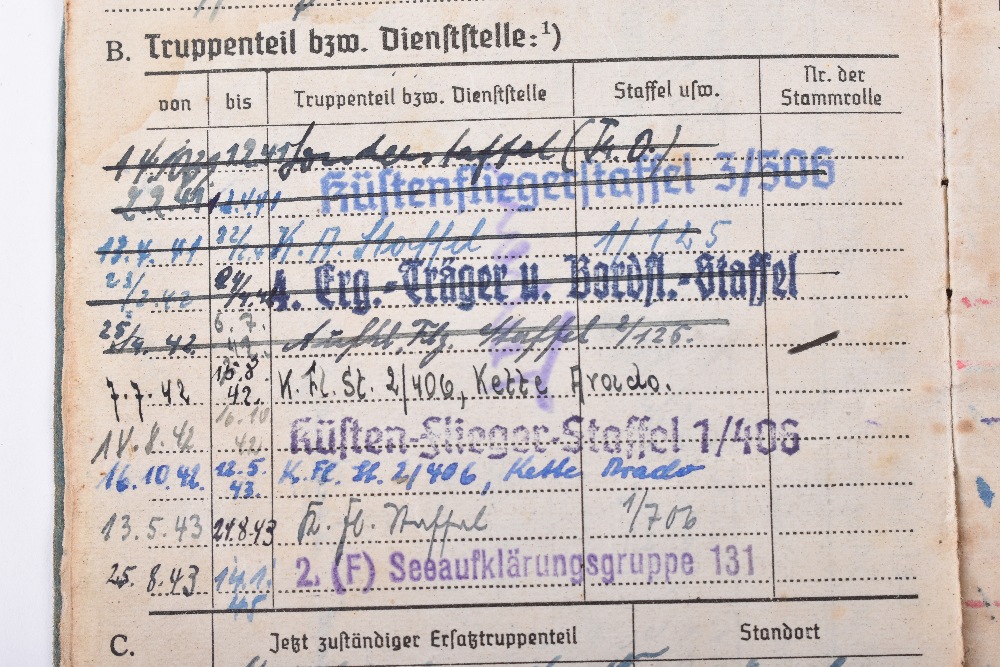 B. Truppenteil bzw. Dienststelle:¹)
von bis Truppenteil bzw. Dienststelle Staffel usw. Nr. der Stammrolle
Sonderstaffel (Tr. O.)
12.4.41 Küstenfliegerstaffel 3/506
12.4.41 K. A. Staffel 1/125
4. Erg.-Träger u. Bordfl.-Staffel
25/4. 42. 6.7. 42. Aufkl. Flg. Staffel 2/125.
7.7.42 15.8. 42. K. Fl. St. 2/406, Kette Arado.
18.8.42 16.10 42. Küsten-Flieger-Staffel 1/406
16.10.42. 12.5. 43. K. Fl. St. 2/406, Kette Arado
13.5.43 24.8.43 K. Fl. Staffel 1/706
25. 8.43 14.1. 45 2. (F) Seeaufklärungsgruppe 131
C. Jetzt zuständiger Ersatztruppenteil Standort